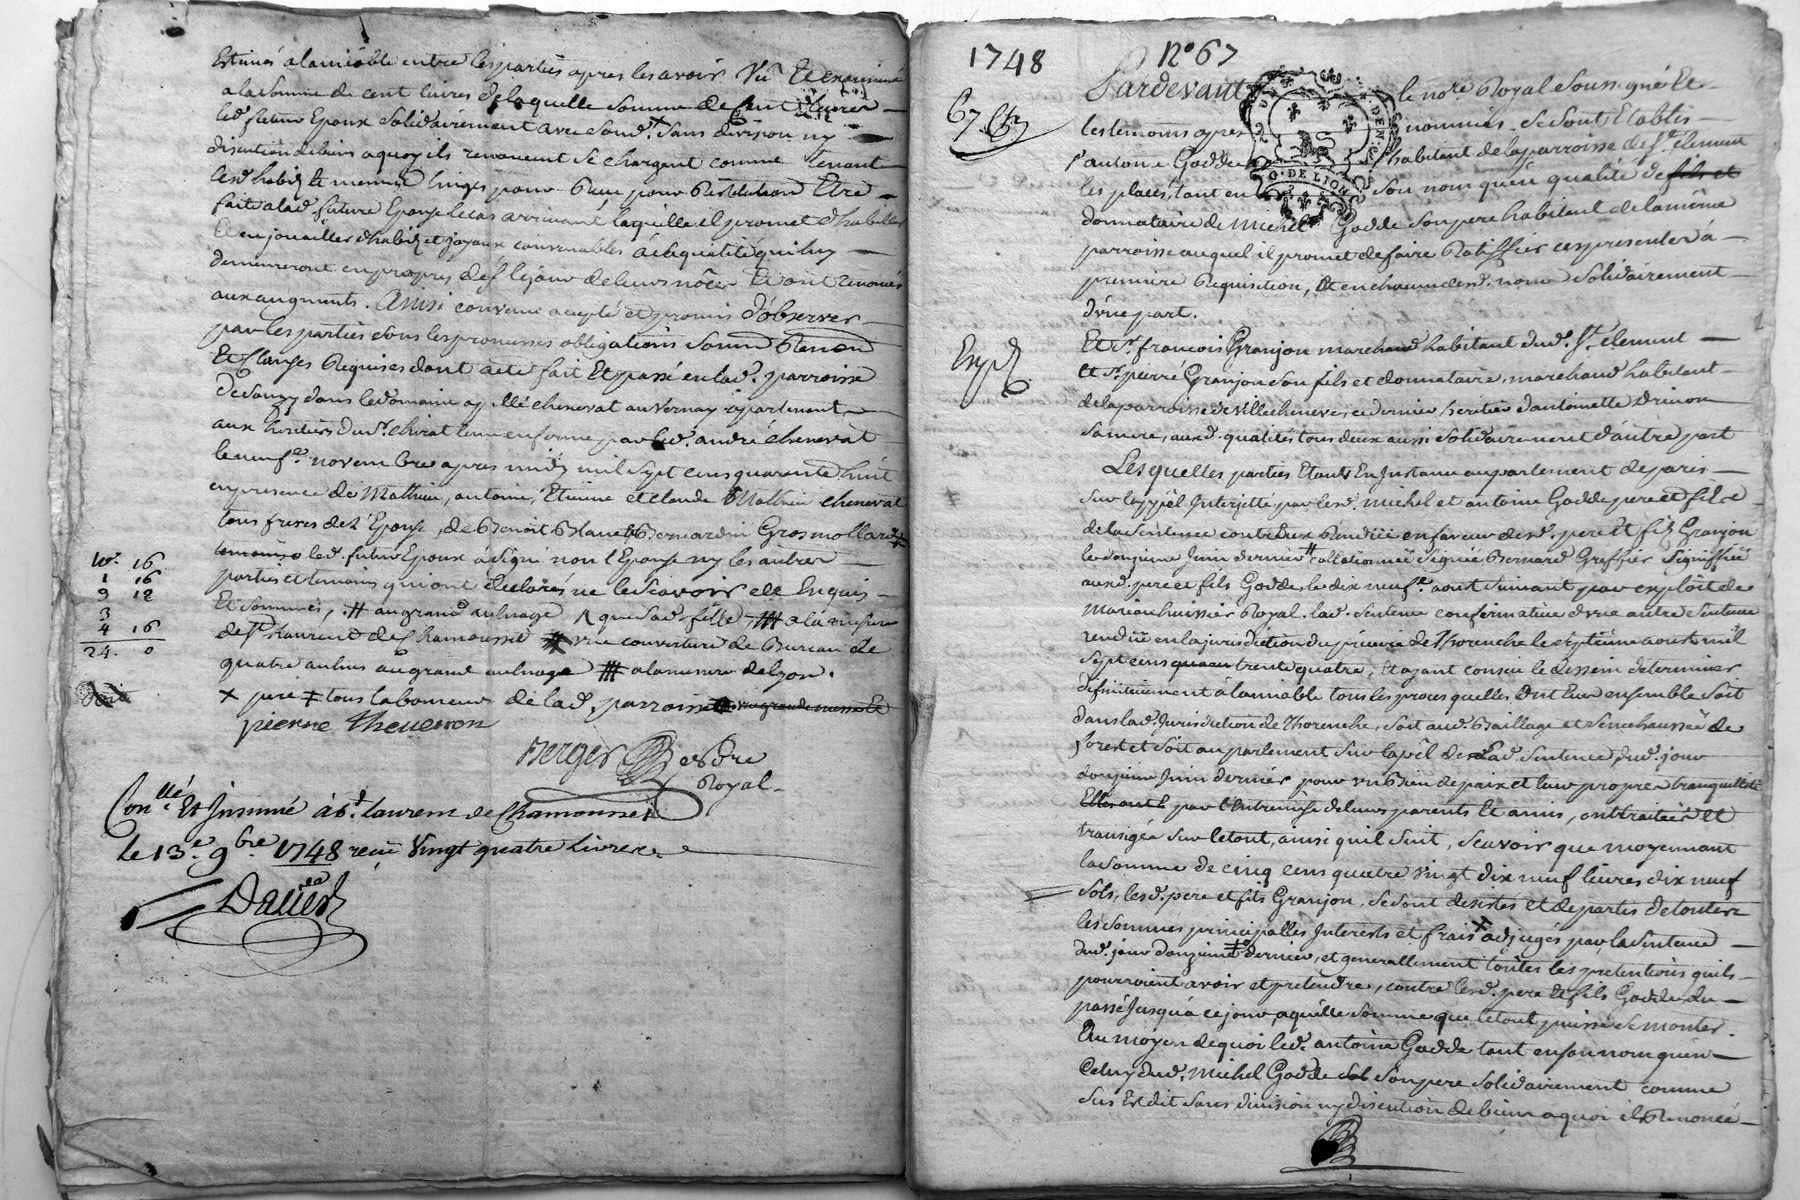 Estimés a lamiable entre les parties apres les avoir Vu Et examiné
a la somme de cent livres de laquelle somme de Cent livres
led. futur Epoux solidairement avec sond. + sans division ny
discution de biens a quoy ils renoncent se chargent comme Tenant
lesd. habits Et menus linges pour Etre
faite a lad. future Epouse le cas arrivant laquelle il promet d'habiller
Et enjouailler d'habits et joyaux convenables a sa qualité qui luy
demeureront en propres dés le jour de leurs nôces Et ont renoncés
aux augments. Ainsi convenu acepté et promis d'observer
par les parties sous les promesses obligations soum Renon
Et Clauses Requises dont acte fait Et passé en lad. parroisse
de Souzy dans le domaine apellé chenevat au Vernay apartenant
aux heritiers du Sr. chirat tenu en ferme par led. andré chenevat
le neufe. novembre apres midy mil sept cens quarante huit
en presence de Mathieu, antoine, Etienne et claude Mathieu chenevat
tous freres de l'Epouse, de Benoit Blanc & Bernardin Grosmollard
temoins led. futur Epoux à signé non l'Epouse ny les autres
parties et temoins qui ont declarés ne le scavoir de ce Enquis
Et sommés, # au grand aulnage que sad. fille # a la mesure
de St. Laurent de Chamousset # une couverture de Bureau de
quatre aulnes au grand aulnage # a la mesure de Lyon.
+ pere ‡ tous laboureurs de lad. parroisse
pierre thevenon
Berger Nore
Royal
lt. 16
1 16
9 12
3
4 16
24. 0
Conllé. Et Insinué à St. laurent de Chamousset
le 13e. 9bre 1748 reçu Vingt quatre livres
1748 No 67
67.
Exp.
Pardevant le nore. Royal soussigné Et
les temoins apres nommés se sont Etablis
Sr antoine Godde habitant de la parroisse de St. Clement
les places, tant en son nom qu'en qualité de fils et
donnataire de Michel Godde son pere habitant de la même
parroisse auquel il promet de faire Ratiffier ces presentes à
premiere Requisition, Et en chacun desd. noms solidairement
d'une part.
Et Sr. francois Granjon marchand habitant dud. St. clement
et Sr. pierre Granjon son fils et donnataire, marchand habitant
de la parroisse de Villecheneve, ce dernier heritier d'antoinette Drivon
sa mere, auxd. qualités tous deux aussi solidairement d'autre part
Lesquelles parties Etants En Instance au parlement de paris
sur l'appel Interjetté par lesd. Michel et antoine Godde pere et fils
de la sentence contre Eux Rendüe en faveur desd. pere Et fils Granjon
le douzieme Juin dernier # collationnée signée Bernard Greffier signiffiée
auxd. pere et fils Godde le dix neufe. aoust suivant par exploit de
Marian huissier Royal. lad. sentence confirmative d'une autre sentence
rendüe en la jurisdiction du prieuré de Thorenche le septieme aoust mil
sept cens trente quatre, Et ayant conçu le dessein de terminer
definitivement à lamiable tous les proces quelles ont Eus ensemble soit
dans lad. Jurisdiction de Thorenche, soit aud. Baillage et senechaussée de
forest et soit au parlement sur lapel de lad. sentence, dud. jour
douzieme Juin dernier, pour un Bien de paix et leur propre tranquillité
Elles ont par l'entremise de leurs parents Et amis, ont traitées Et
transigée sur le tout, ainsi quil suit, scavoir que moyennant
la somme de cinq cens quatre vingt dix neuf livres dix neuf
sols, lesd. pere et fils Granjon, se sont desistés et departis de toutes
les sommes principalles Interests et frais + adjugés par la sentence
dud. jour douzieme ‡ dernier, et generallement toutes les pretentions quils
pourroient avoir et pretendre, contre lesd. pere Et fils Godde du
passé jusqu'à ce jour, a quelle somme que le tout puisse se monter.
Au moyen de quoi led. antoine Godde tant en son nom qu'en
Celuy dud. Michel Godde son pere solidairement comme
sus Est dit sans division ny discution de biens a quoi ils Renonce
G. DE LYON